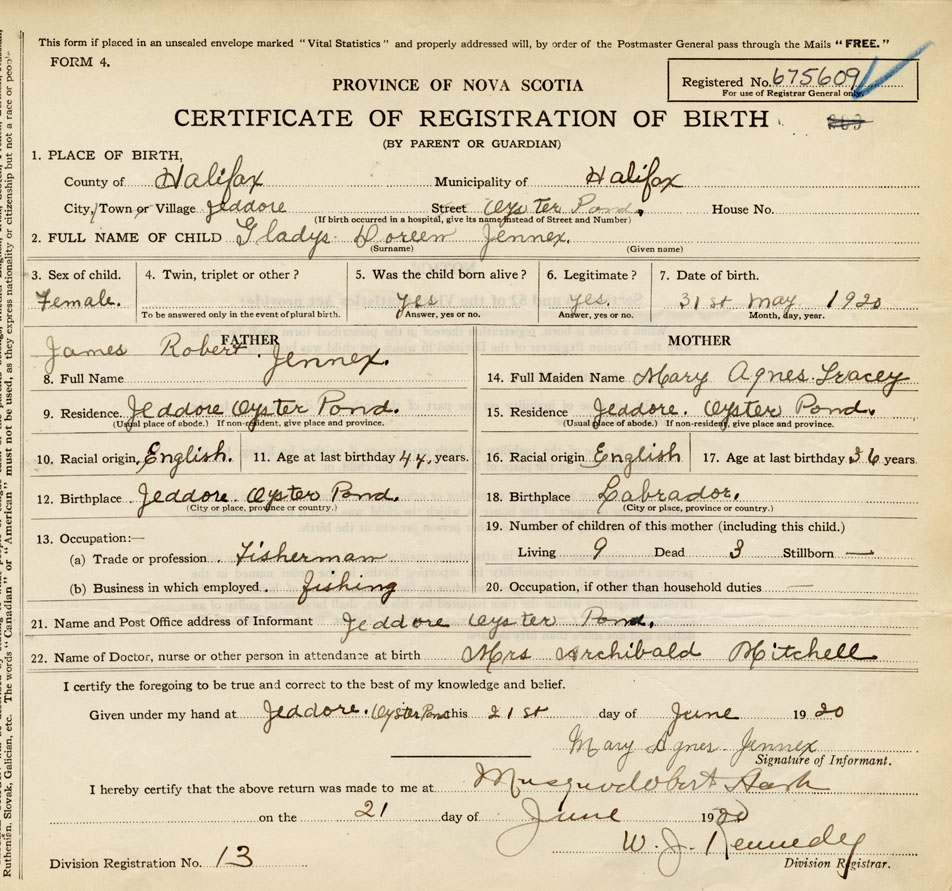 This form if placed in an unsealed envelope marked "Vital Statistics" and properly addressed will, by order of the Postmaster General pass through the Mails "FREE."
FORM 4.
Registered No. 675609
For use of Registrar General only.
PROVINCE OF NOVA SCOTIA
CERTIFICATE OF REGISTRATION OF BIRTH
(BY PARENT OR GUARDIAN)
1. PLACE OF BIRTH,
County of Halifax Municipality of Halifax
City, Town or Village Jeddore Street Oyster Pond. House No.
(If birth occurred in a hospital, give its name instead of Street and Number)
2. FULL NAME OF CHILD Gladys Doreen Jennex.
(Surname) (Given name)
3. Sex of child. 4. Twin, triplet or other? 5. Was the child born alive? 6. Legitimate? 7. Date of birth.
Female. yes yes. 31st May 1920
To be answered only in the event of plural birth. Answer, yes or no. Answer, yes or no. Month, day, year.
FATHER
James Robert Jennex.
8. Full Name
9. Residence Jeddore Oyster Pond.
(Usual place of abode.) If non-resident, give place and province.
10. Racial origin English. 11. Age at last birthday 44. years.
12. Birthplace Jeddore Oyster Pond.
(City or place, province or country.)
13. Occupation:—
(a) Trade or profession Fisherman
(b) Business in which employed. fishing
MOTHER
14. Full Maiden Name Mary Agnes
15. Residence Jeddore. Oyster Pond.
(Usual place of abode.) If non-resident, give place and province.
16. Racial origin English 17. Age at last birthday 36 years
18. Birthplace Labrador.
(City or place, province or country.)
19. Number of children of this mother (including this child.)
Living 9 Dead 3 Stillborn —
20. Occupation, if other than household duties —
21. Name and Post Office address of Informant Jeddore Oyster Pond.
22. Name of Doctor, nurse or other person in attendance at birth Mrs Archibald Mitchell
I certify the foregoing to be true and correct to the best of my knowledge and belief.
Given under my hand at Jeddore. Oyster Pond this 21st day of June 1920
Mary Agnes Jennex
Signature of Informant.
I hereby certify that the above return was made to me at Musquodoboit Harb
on the 21 day of June 1920
W. J. Kennedy
Division Registrar.
Division Registration No. 13
The words "Canadian" or "American" must not be used, as they express nationality or citizenship but not a race or people.
Ruthenian, Slovak, Galician, etc.